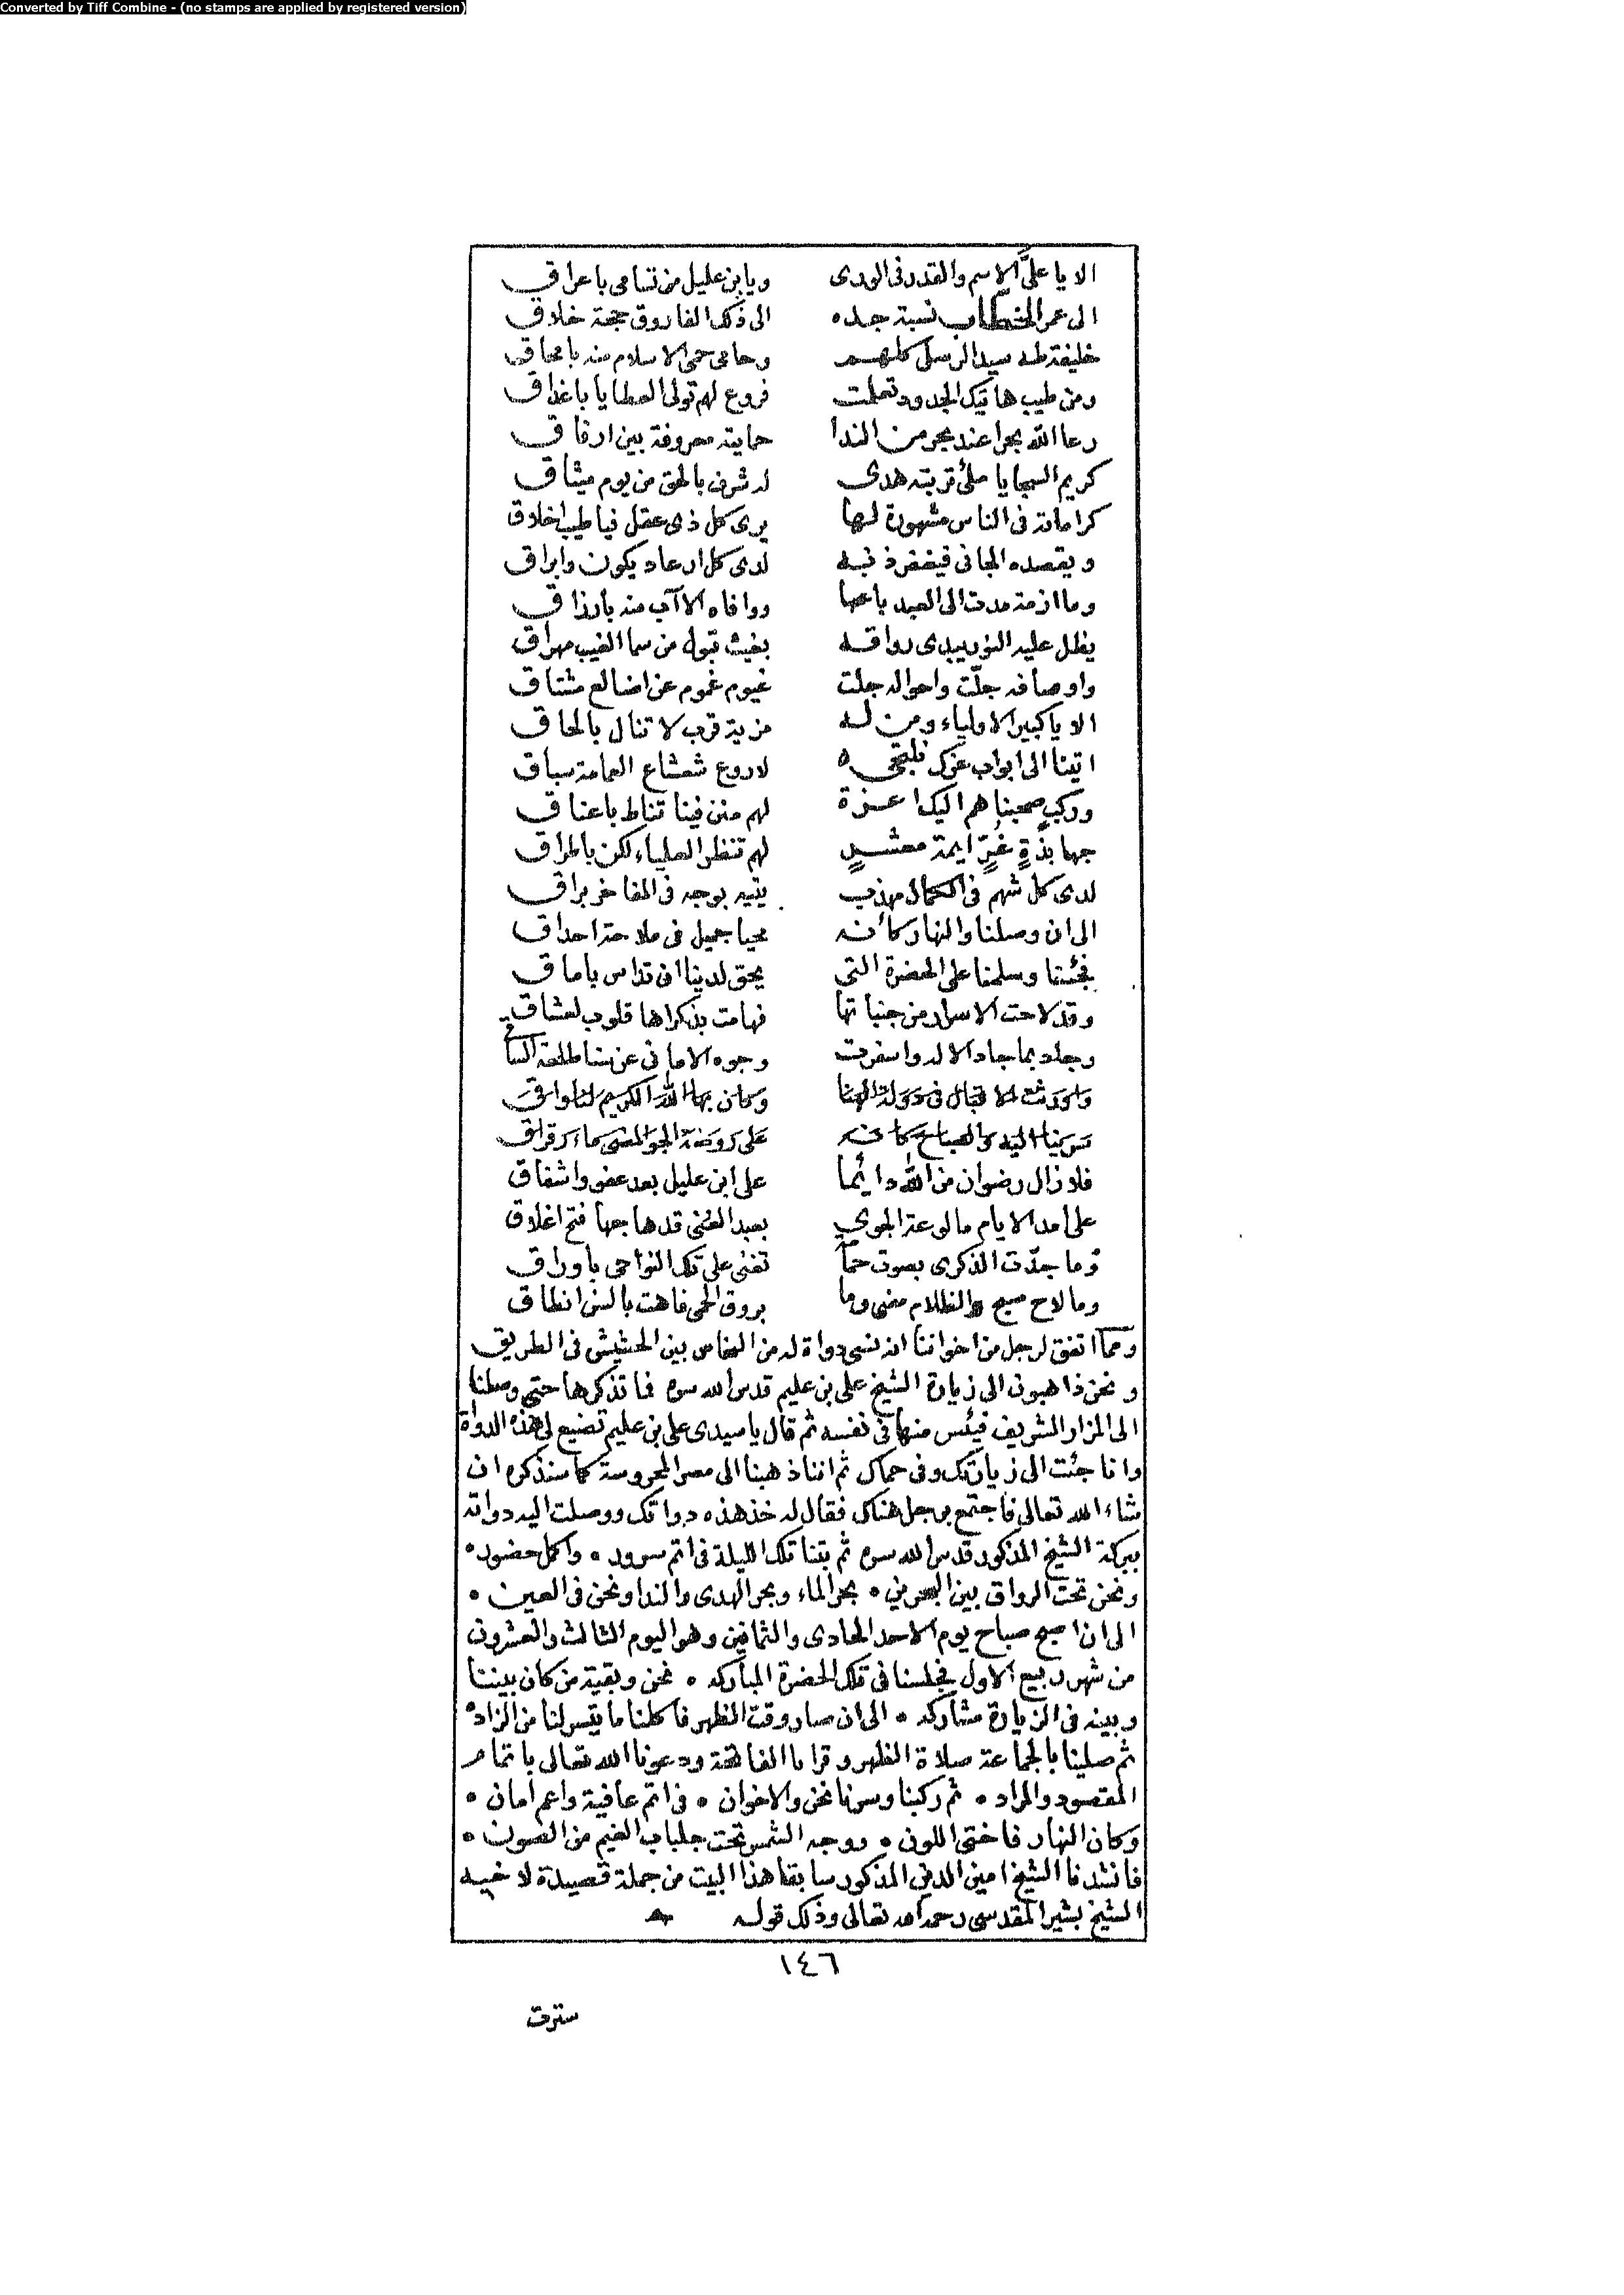 Converted by Tiff Combine - (no stamps are applied by registered version)
الا يا علىَّ الاسم والقدر فى الورى ويا بن عليل من تسامى باعراق
الى عمر الخطاب نسبة جده الى ذلك الفاروق حجة خلاق
خليفة طه سيد الرسل كلهم وحامى حمى الاسلام منه بامحاق
ومن طيب هاتيك الجدود تعلت فروع لهم تولى العطايا باغداق
رعا الله بحرا عند بحر من الندا حماية معروفة بين ارفاق
كريم السجايا ملئ تربته هدى له شرف بالحق من يوم ميثاق
كراماته فى الناس مشهورة لها يرى كل ذى عقل فيا طيب اخلاق
ويقصده الجانى فيغفر ذنبه لدى كل ارعاد يكون وابراق
وما ازمة مدت الى العبد باعها ووافاه الا آب منه بارزاق
يظل عليه النور يبدى رواقه بغيث قبول من سما الغيب مهراق
واوصافه جلّت واحواله جلت غيوم غموم عن اضالع مشتاق
الا يا كبير الاولياء ومن له مزية قرب لا تنال بالحاق
اتينا الى ابواب عزك نلتجى لاروع شعشاع العمامة سباق
وركب صحبناهم اليك اعزة لهم منن فينا تناط باعناق
جهابذةٍ غُرٍّ ايمة معشرٍ لهم تنظر العلياء لكن باطراق
لدى كل شهم فى الكمال مهذب يتيه بوجه فى المفاخر براق
الى ان وصلنا والنهار كأنه محيا جميل فى ملاحة احداق
فجئنا وسلمنا على الحضرة التى يحق لدينا ان تداس باماق
وقد لاحت الاسرار من جنباتها فهامت بذكراها قلوب لعشاق
وجاد بما جاد الاله واسفرت وجوه الامانى عن سنا طلعة الساقى
الاقبال فى دولة الهنا وكان بها الله الكريم لنا واقى
سرينا اليه والصباح كانه على روضة الجو المضى ماء رقراق
فلا زال رضوان من الله دائما على ابن عليل بعد عفو واشفاق
على امد الايام ما لوعة الجوى بعبد الغنى قد هاجها فتح اغلاق
وما جدّت الذكرى بصوت حمامة تغنى على تلك النواحى باوراق
وما لاح صبح والظلام مضى وما بروق الحمى فاهت بالسن انطاق
ومما اتفق لرجل من اخواننا انه نسى دواة له من النحاس بين الحشيش فى الطريق
ونحن ذاهبون الى زيارة الشيخ على بن عليم قدس الله سره فما تذكرها حتى وصلنا
الى المزار الشريف فيئس منها فى نفسه ثم قال يا سيدى على بن عليم تضيع لى هذه الدواة
وانا جئت الى زيارتك وفى حماك ثم اننا ذهبنا الى مصر المحروسة كما سنذكره ان
شاء الله تعالى فاجتمع برجل هناك فقال له خذ هذه دواتك ووصلت اليه دواته
ببركة الشيخ المذكور قدس الله سره ثم بتنا تلك الليلة فى اتم سرور ٠ واكمل حضور ٠
ونحن تحت الرواق بين البحرين ٠ بحر الماء وبحر الهدى والندا ونحن فى العين ٠
الى ان اصبح صباح يوم الاحد الحادى والثمانين وهو اليوم الثالث والعشرون
من شهر ربيع الاول فجلسنا فى تلك الحضرة المباركه ٠ نحن وبقية من كان بيننا
وبينه فى الزيارة مشاركه ٠ الى ان صار وقت الظهر فاكلنا ما تيسر لنا من الزاد ٠
ثم صلينا بالجماعة صلاة الظهر وقرانا الفاتحة ودعونا الله تعالى باتمام
المقصود والمراد ٠ ثم ركبنا وسرنا نحن والاخوان ٠ فى اتم عافية واعم امان ٠
وكان النهار فاختى اللون ٠ ووجه الشمس تحت جلباب الغيم من الصون ٠
فانشدنا الشيخ امين الدين المذكور سابقا هذا البيت من جملة قصيدة لاخيه
الشيخ بشير المقدسى رحمه الله تعالى وذلك قوله
١٤٦
سترت